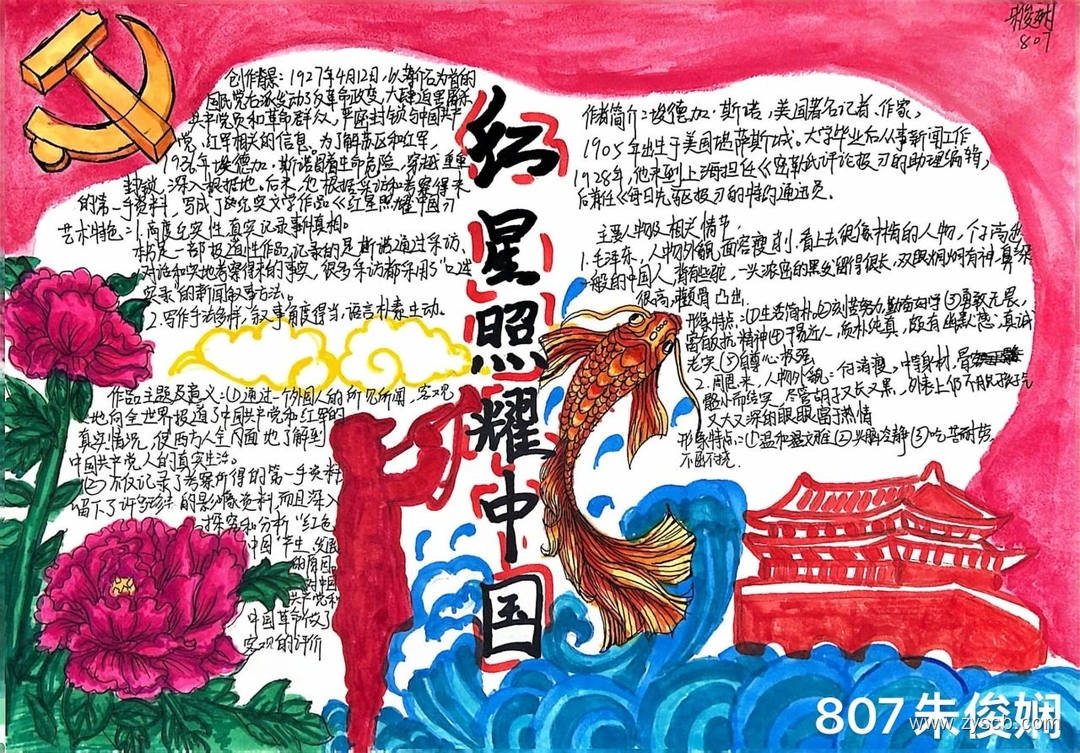 807
红星照耀中国
创作背景：1927年4月12日，以蒋介石为首的
国民党右派发动了反革命政变，大肆迫害屠杀
共产党员和革命群众，严密封锁与中国共产
党、红军相关的信息。为了解苏区和红军，
1936年埃德加·斯诺冒着生命危险，穿越重重
封锁，深入根据地。后来，他根据采访和考察得来
的第一手资料，写成了纪实文学作品《红星照耀中国》
艺术特色：1.高度纪实性，真实记录事件真相。
本书是一部报道性作品，记录的是斯诺通过采访、
对话和实地考察得来的事实，很多采访都采用了“口述
实录”的新闻叙事方法。
2.写作手法多样，叙事角度得当，语言朴素生动。
作品主题及意义：①通过一个外国人的所见所闻，客观
地向全世界报道了中国共产党和红军的
真实情况，使西方人全面地了解到
中国共产党人的真实生活。
②不仅记录了考察所得的第一手资料
留下了许多珍贵的影像资料，而且深入
探究和分析“红色
中国”产生、发展
的原因。
对中国
共产党和
中国革命做了
客观的评价
作者简介：埃德加·斯诺，美国著名记者、作家，
1905年出生于美国堪萨斯城。大学毕业后从事新闻工作
1928年，他来到上海担任《密勒氏评论报》的助理编辑，
后兼任《每日先驱报》的特约通讯员。
主要人物及相关情节：
1.毛泽东，人物外貌：面容瘦削、看上去很像林肯的人物，个子高出
一般的中国人，背有些驼，一头浓密的黑发留得很长，双眼炯炯有神，鼻梁
很高，颧骨凸出。
形象特点：①生活简朴②刻苦努力，勤奋好学③勇敢无畏，
富有反抗精神④平易近人，质朴纯真，颇有幽默感，真诚
老实⑤自尊心极强
2.周恩来，人物外貌：个子清瘦，中等身材，骨
骼小而结实，尽管胡子又长又黑，外表上仍不脱孩子气
又大又深的眼睛富于热情
形象特点：①温和温文雅②头脑冷静③吃苦耐劳、
不屈不挠.
807 朱俊娴
www.zyscb.com